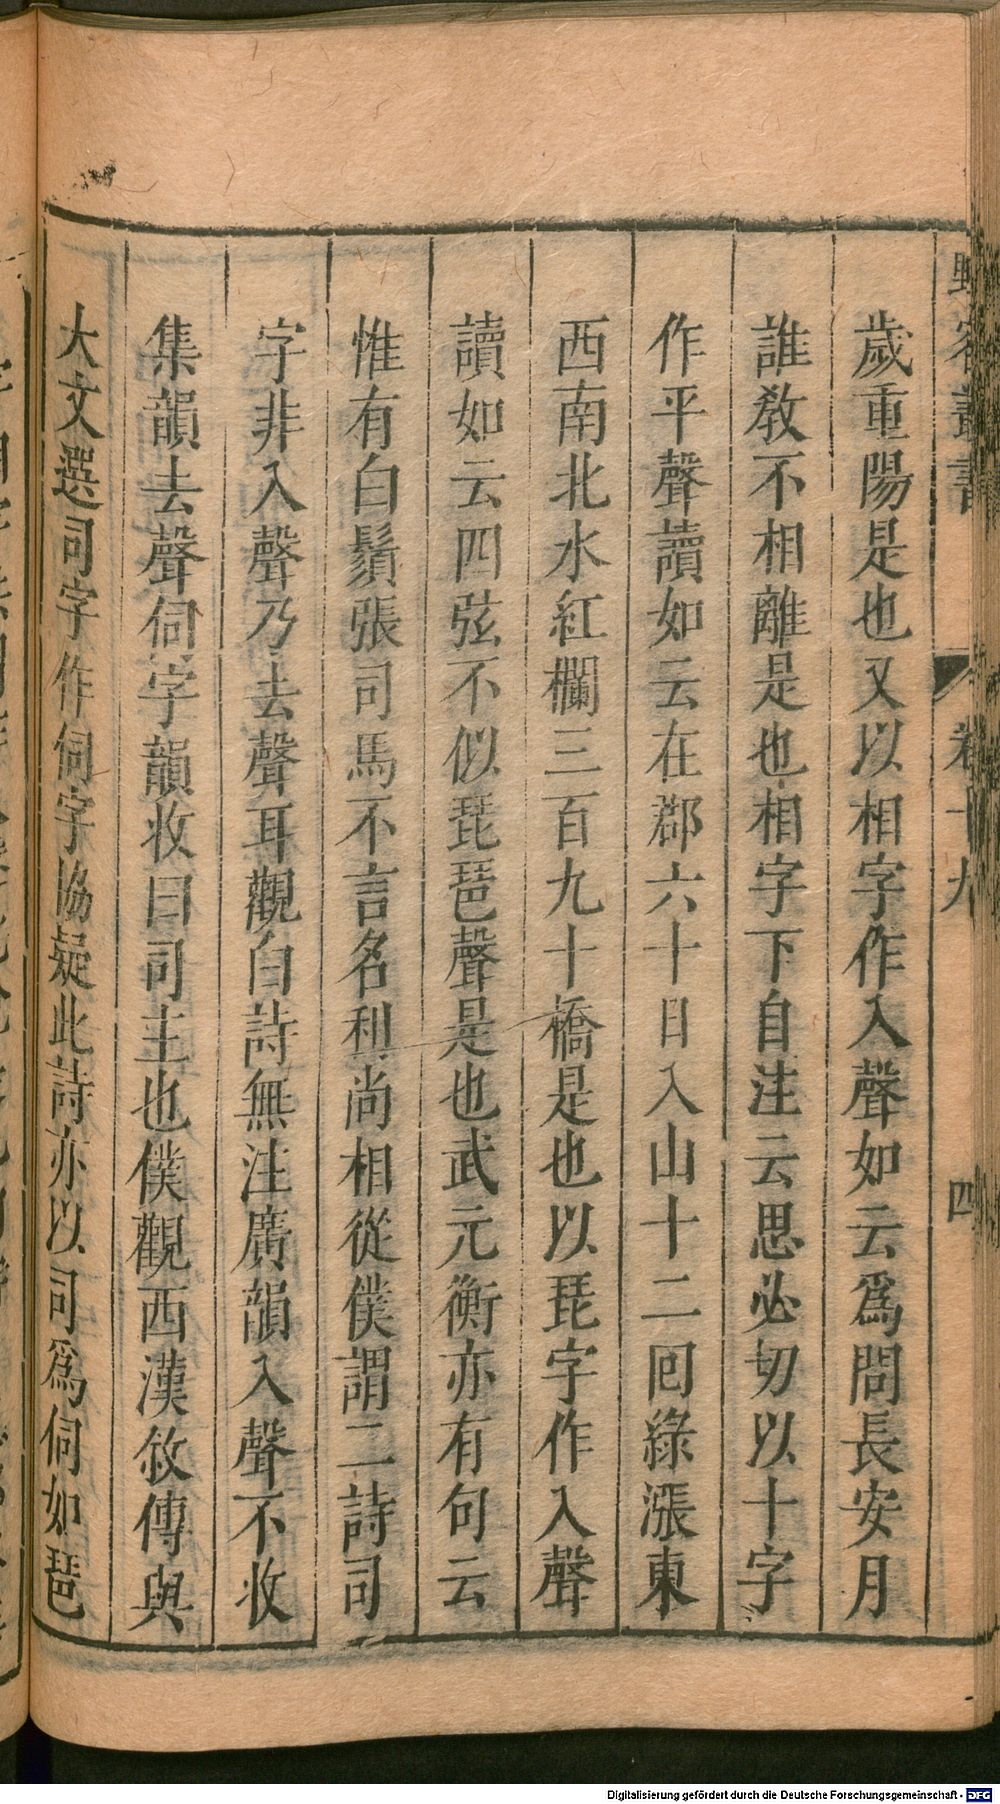 野客叢書 卷十九 四
歲重陽是也又以相字作入聲如云爲問長安月
誰敎不相離是也相字下自注云思必切以十字
作平聲讀如云在郡六十日入山十二回綠漲東
西南北水紅欄三百九十橋是也以琵字作入聲
讀如云四弦不似琵琶聲是也武元衡亦有句云
惟有白鬚張司馬不言名利尚相從僕謂二詩司
字非入聲乃去聲耳觀白詩無注廣韻入聲不收
集韻去聲伺字韻收曰司主也僕觀西漢敘傳與
大文選司字作伺字協疑此詩亦以司爲伺如琶
Digitalisierung gefördert durch die Deutsche Forschungsgemeinschaft - DFG